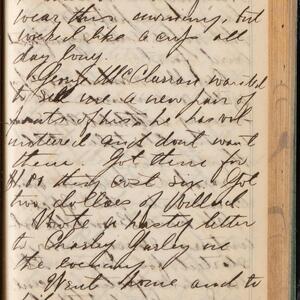 wear this evening, but
worked like a cuss all
day long.
George McClurran wanted
to sell me a new pair of
pants of his, he has out
and dont want
them. Got them for
they cost six. Got
two dollars of Willard
Wrote a hasty letter
to Charley in
the evening
Went home and to